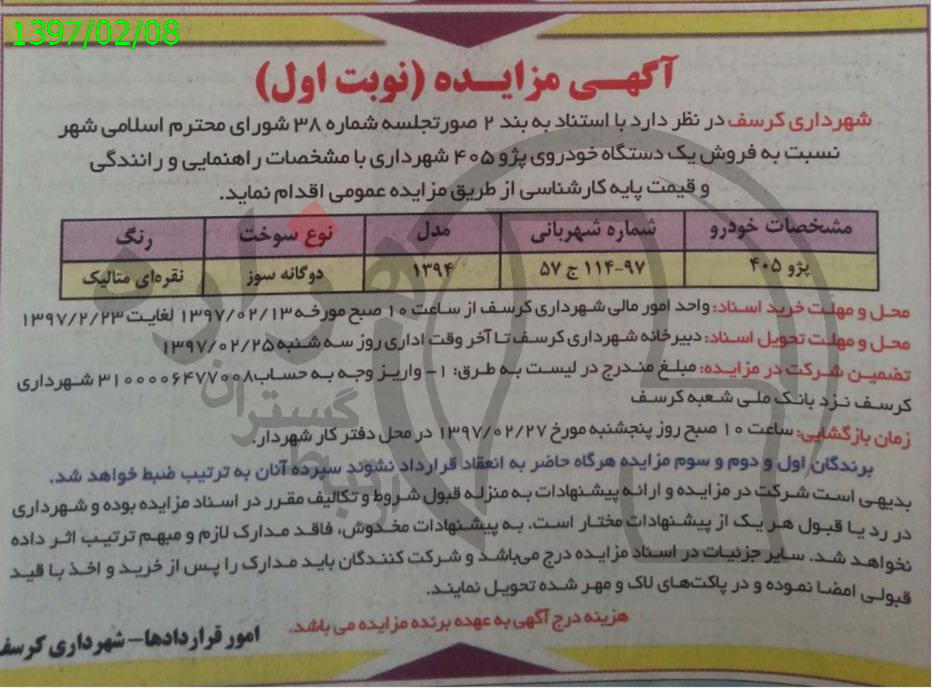 1397/02/08
آگهی مزایده (نوبت اول)
شهرداری کرسف در نظر دارد با استناد به بند ۲ صورتجلسه شماره ۳۸ شورای محترم اسلامی شهر
نسبت به فروش یک دستگاه خودروی پژو ۴۰۵ شهرداری با مشخصات راهنمایی و رانندگی
و قیمت پایه کارشناسی از طریق مزایده عمومی اقدام نماید.
مشخصات خودرو شماره شهربانی مدل نوع سوخت رنگ
پژو ۴۰۵ ۹۷-۱۱۴ ج ۵۷ ۱۳۹۴ دوگانه سوز نقره‌ای متالیک
محل و مهلت خرید اسناد: واحد امور مالی شهرداری کرسف از ساعت ۱۰ صبح مورخه ۱۳۹۷/۰۲/۱۳ لغایت ۱۳۹۷/۲/۲۳
محل و مهلت تحویل اسناد: دبیرخانه شهرداری کرسف تا آخر وقت اداری روز سه شنبه ۱۳۹۷/۰۲/۲۵
تضمین شرکت در مزایده: مبلغ مندرج در لیست به طرق: ۱- واریز وجه به حساب ۳۱۰۰۰۰۶۴۷۷۰۰۸ شهرداری
کرسف نزد بانک ملی شعبه کرسف
زمان بازگشایی: ساعت ۱۰ صبح روز پنجشنبه مورخ ۱۳۹۷/۰۲/۲۷ در محل دفتر کار شهردار.
برندگان اول و دوم و سوم مزایده هرگاه حاضر به انعقاد قرارداد نشوند سپرده آنان به ترتیب ضبط خواهد شد.
بدیهی است شرکت در مزایده و ارائه پیشنهادات به منزله قبول شروط و تکالیف مقرر در اسناد مزایده بوده و شهرداری
در رد یا قبول هر یک از پیشنهادات مختار است. به پیشنهادات مخدوش، فاقد مدارک لازم و مبهم ترتیب اثر داده
نخواهد شد. سایر جزئیات در اسناد مزایده درج می‌باشد و شرکت کنندگان باید مدارک را پس از خرید و اخذ با قید
قبولی امضا نموده و در پاکت‌های لاک و مهر شده تحویل نمایند.
هزینه درج آگهی به عهده برنده مزایده می باشد.
امور قراردادها – شهرداری کرسف
هزاره
گستران